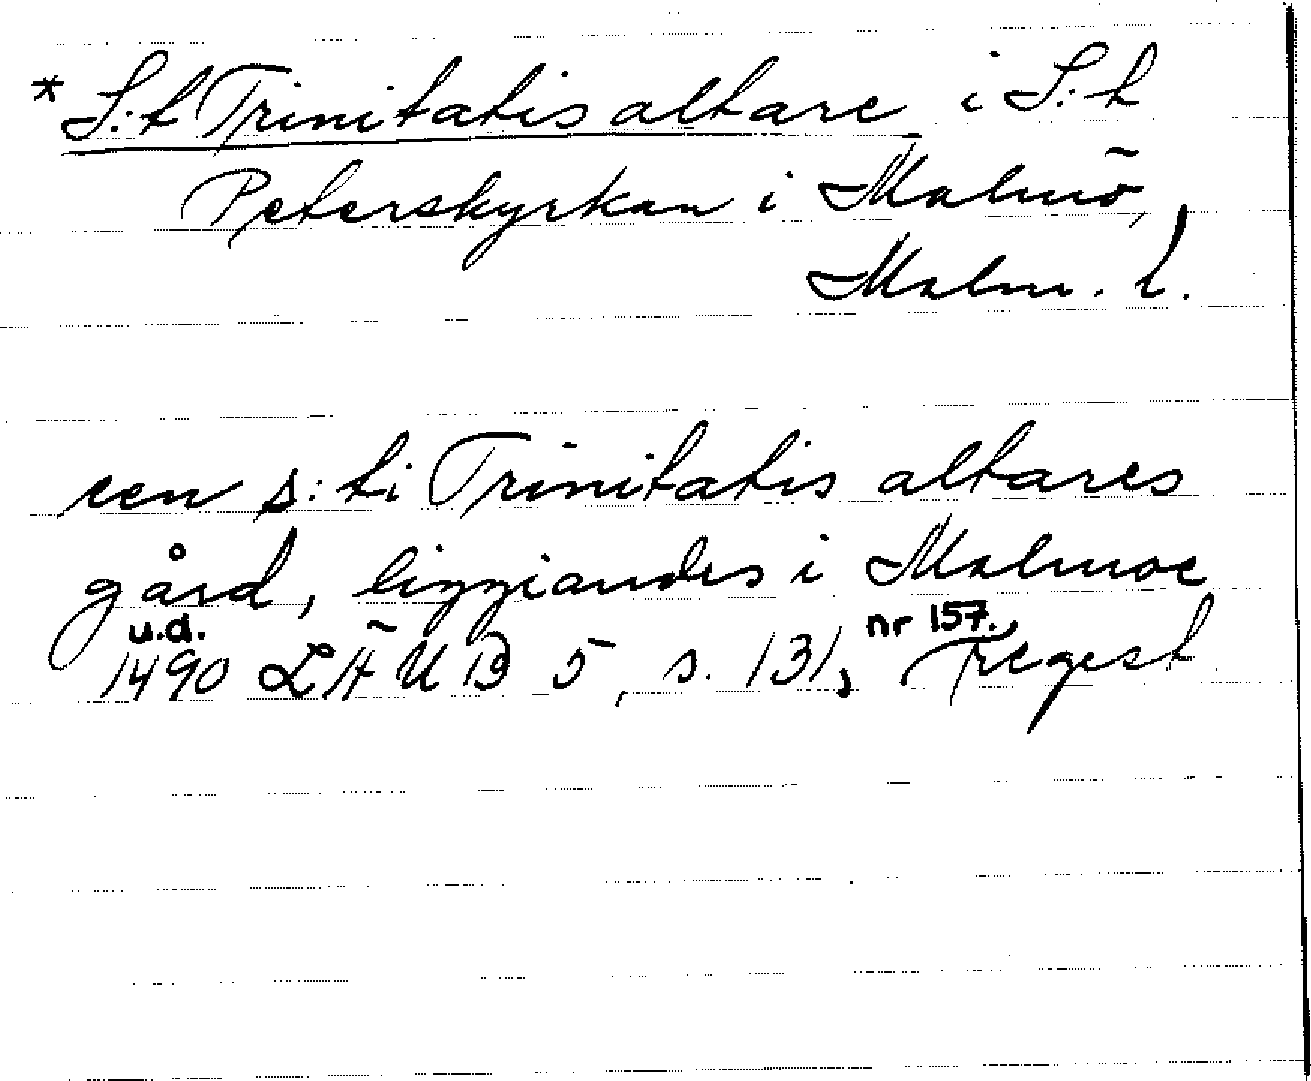 * S:t Trinitatis altare i S:t
Peterskyrkan i Malmö,
Malm. l.
een s:ti Trinitatis altares
gård, liggiandes i Malmoe
u.d. nr 157.,
1490 LÄUB 5, s. 131, regest